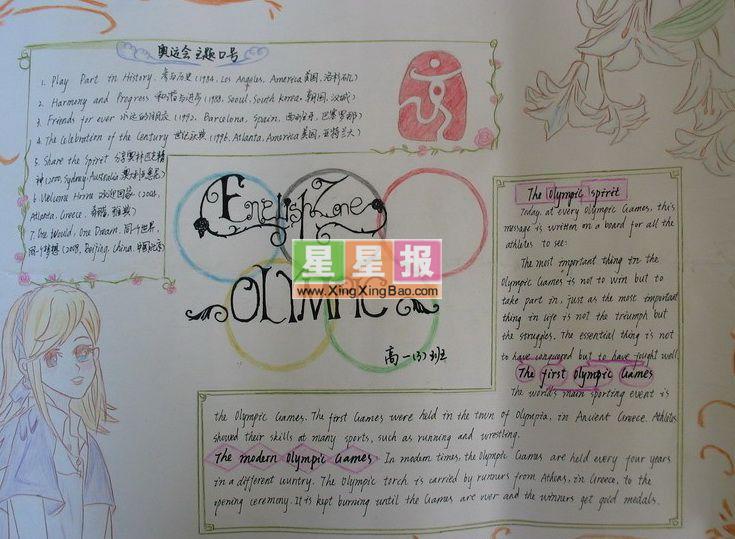 奥运会主题口号
1. Play Part in History. 参与历史 (1984, Los Angeles, America 美国, 洛杉矶)
2. Harmony and Progress 和谐与进步 (1988, Seoul, South Korea. 韩国, 汉城)
3. Friends for ever 永远的朋友 (1992, Barcelona, Spain, 西班牙, 巴塞罗那)
4. The Celebration of the Century 世纪庆典 (1996, Atlanta, America 美国, 亚特兰大)
5. Share the Spirit 分享奥林匹克精
神 (2000, Sydney, Australia
6. Welcome Home 欢迎回家 (2004,
Atlanta, Greece, 希腊, 雅典)
7. One World, One Dream. 同一个世界,
同一个梦想 (2008, Beijing, China, 中国北京)
English Zone
OLYMPIC
星星报
www.XingXingBao.com
高一(3)班
The Olympic Spirit
Today, at every Olympic Games, this
message is written on a board for all the
athletes to see:
The most important thing in the
Olympic Games is not to win but to
take part in, just as the most important
thing in life is not the triumph but
the struggles. The essential thing is not
to have conquered but to have fought well.
The first Olympic Games
The world's main sporting event is
the Olympic Games. The first Games were held in the town of Olympia, in Ancient Greece. Athletes
showed their skills at many sports, such as running and wrestling.
The modern Olympic Games In modern times, the Olympic Games are held every four years
in a different country. The Olympic torch is carried by runners from Athens, in Greece, to the
opening ceremony. It is kept burning until the Games are over and the winners get gold medals.